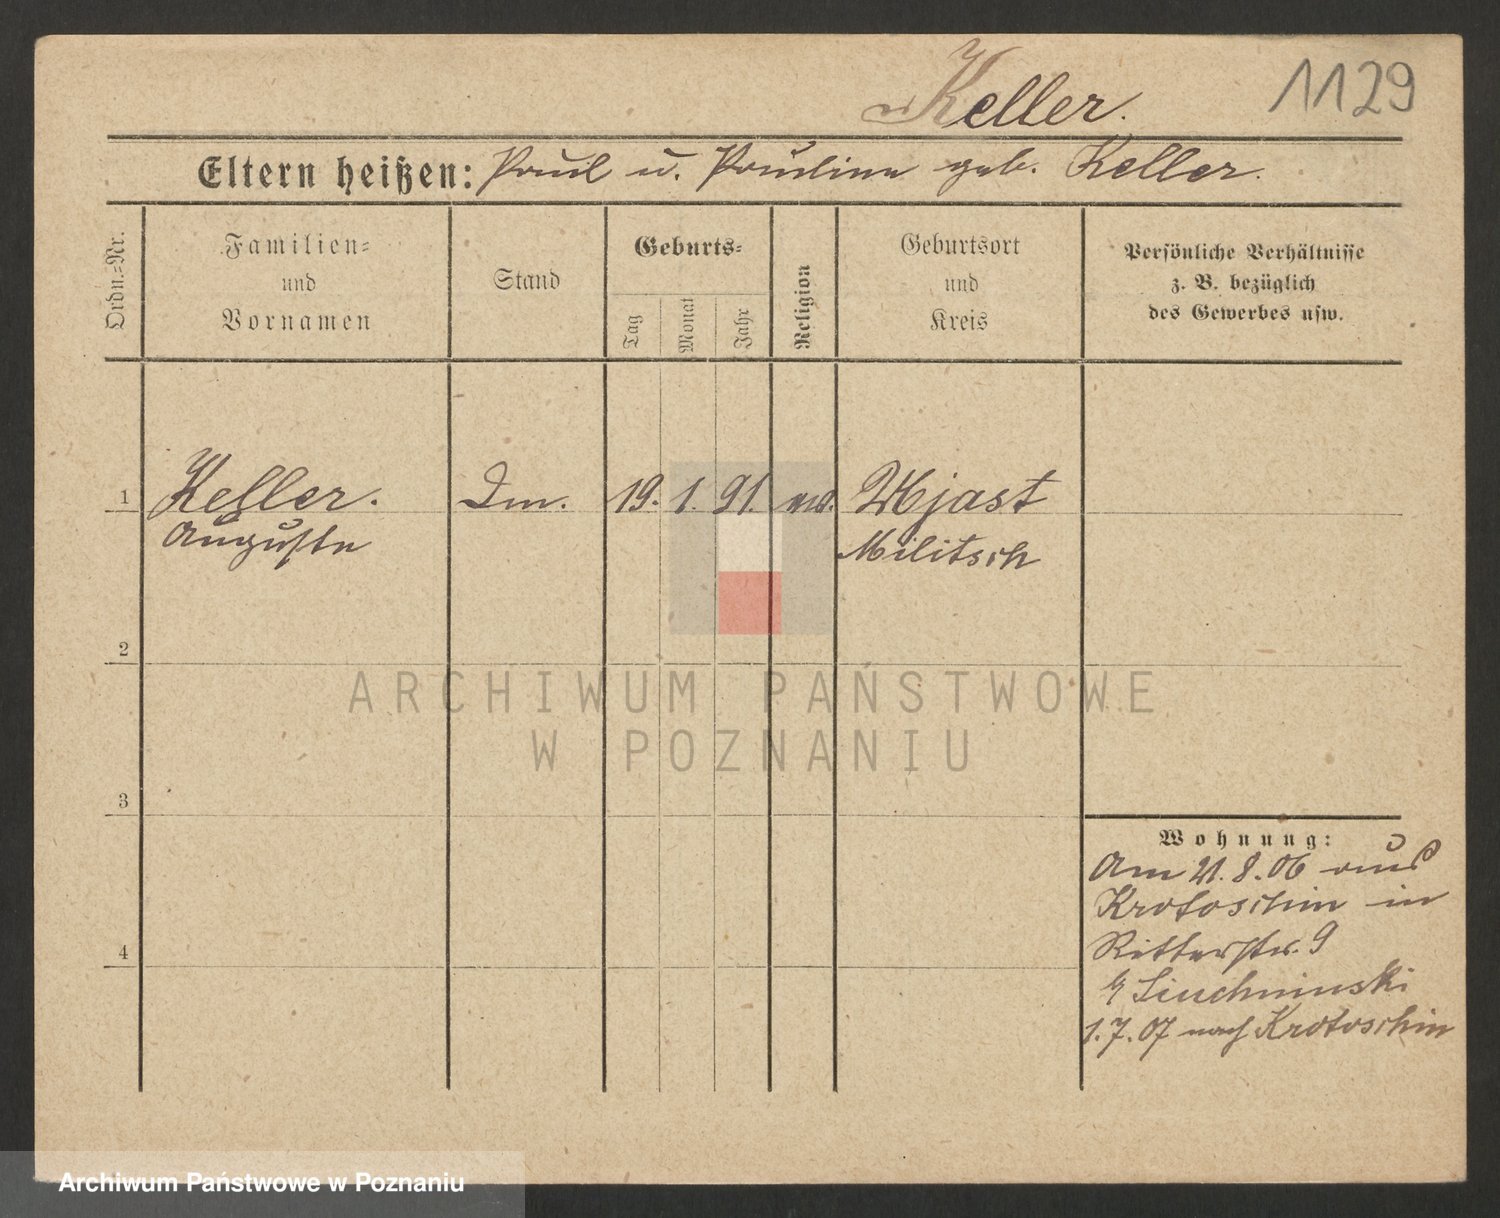 Keller.
1129
Eltern heißen: Paul u. Pauline geb. Keller.
Ordn.=Nr.
Familien=
und
Vornamen
Stand
Geburts=
Tag
Monat
Jahr
Religion
Geburtsort
und
Kreis
Persönliche Verhältnisse
z. B. bezüglich
des Gewerbes usw.
1 Keller. 19. 1. 91. Wjast
Auguste Militsch
2
3
4
Wohnung:
Am 21.8.06 aus
Krotoschin in
Ritterstr. 9
1.7.07 nach Krotoschin
ARCHIWUM PAŃSTWOWE
W POZNANIU
Archiwum Państwowe w Poznaniu